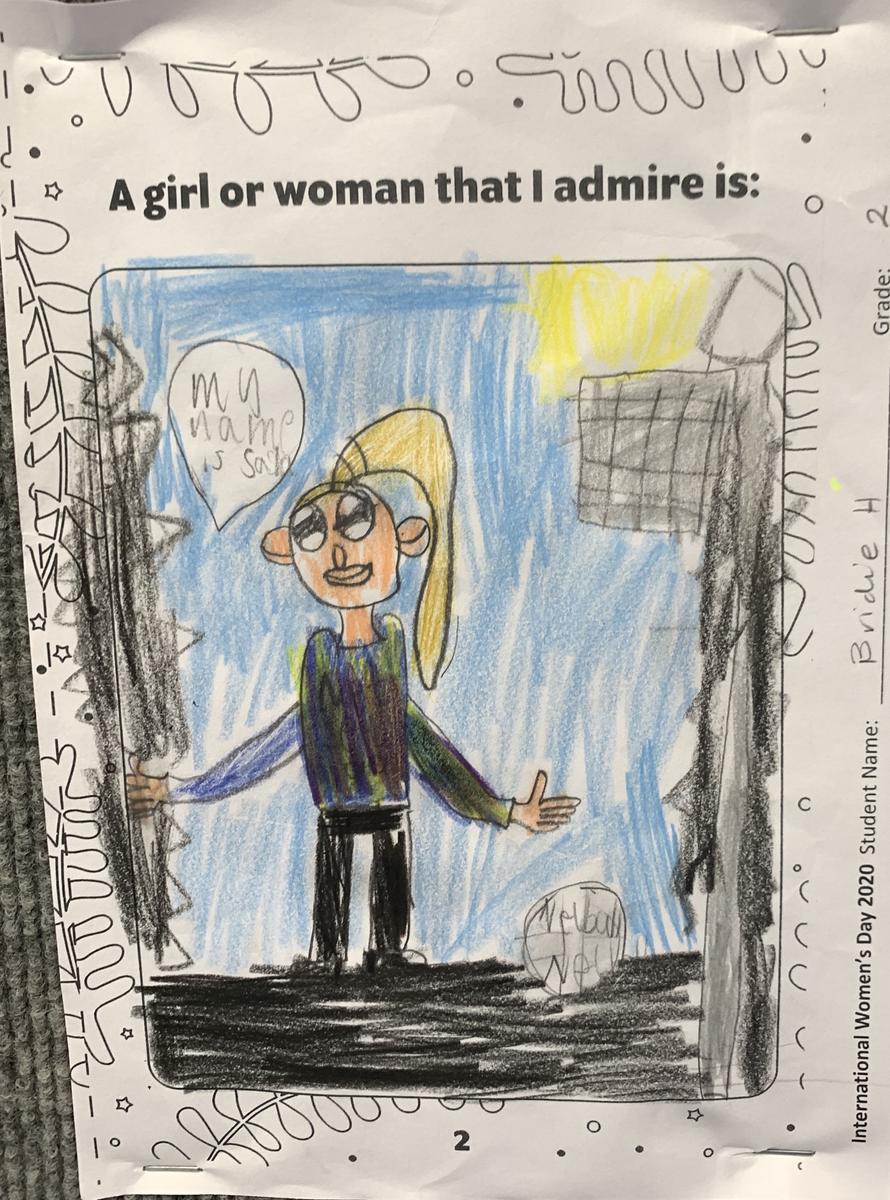 A girl or woman that I admire is:
my
name
is
2
International Women's Day 2020 Student Name: Bridie H Grade: 2